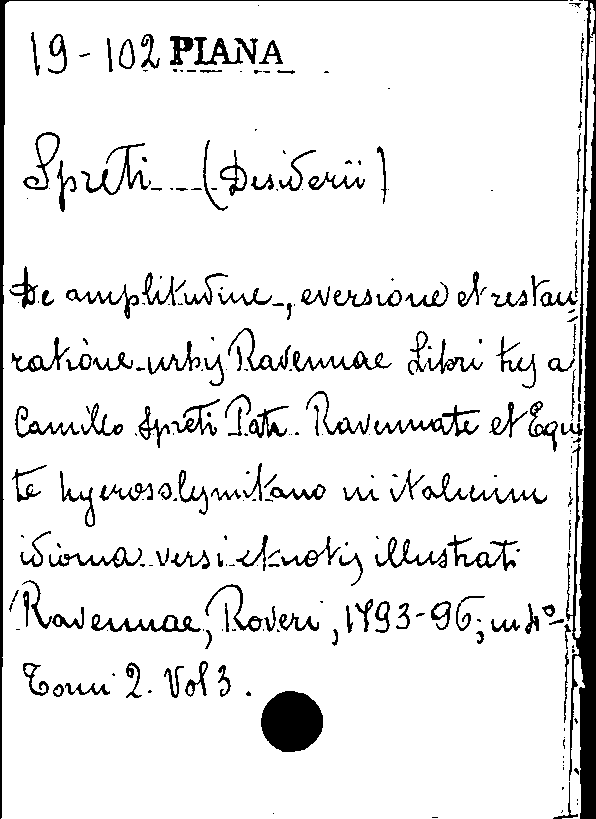 19-102 PIANA
Spreti (Desiderii)
De amplitudine, eversione et restau
ratione urbis Ravennae Libri tres a
Camillo Spreti Patr. Ravennate et Equi
te hyerosolymitano in italicum
idioma versi et notis illustrati
Ravennae, Roveri, 1793-96; in 4°
Tomi 2. Vol 3.